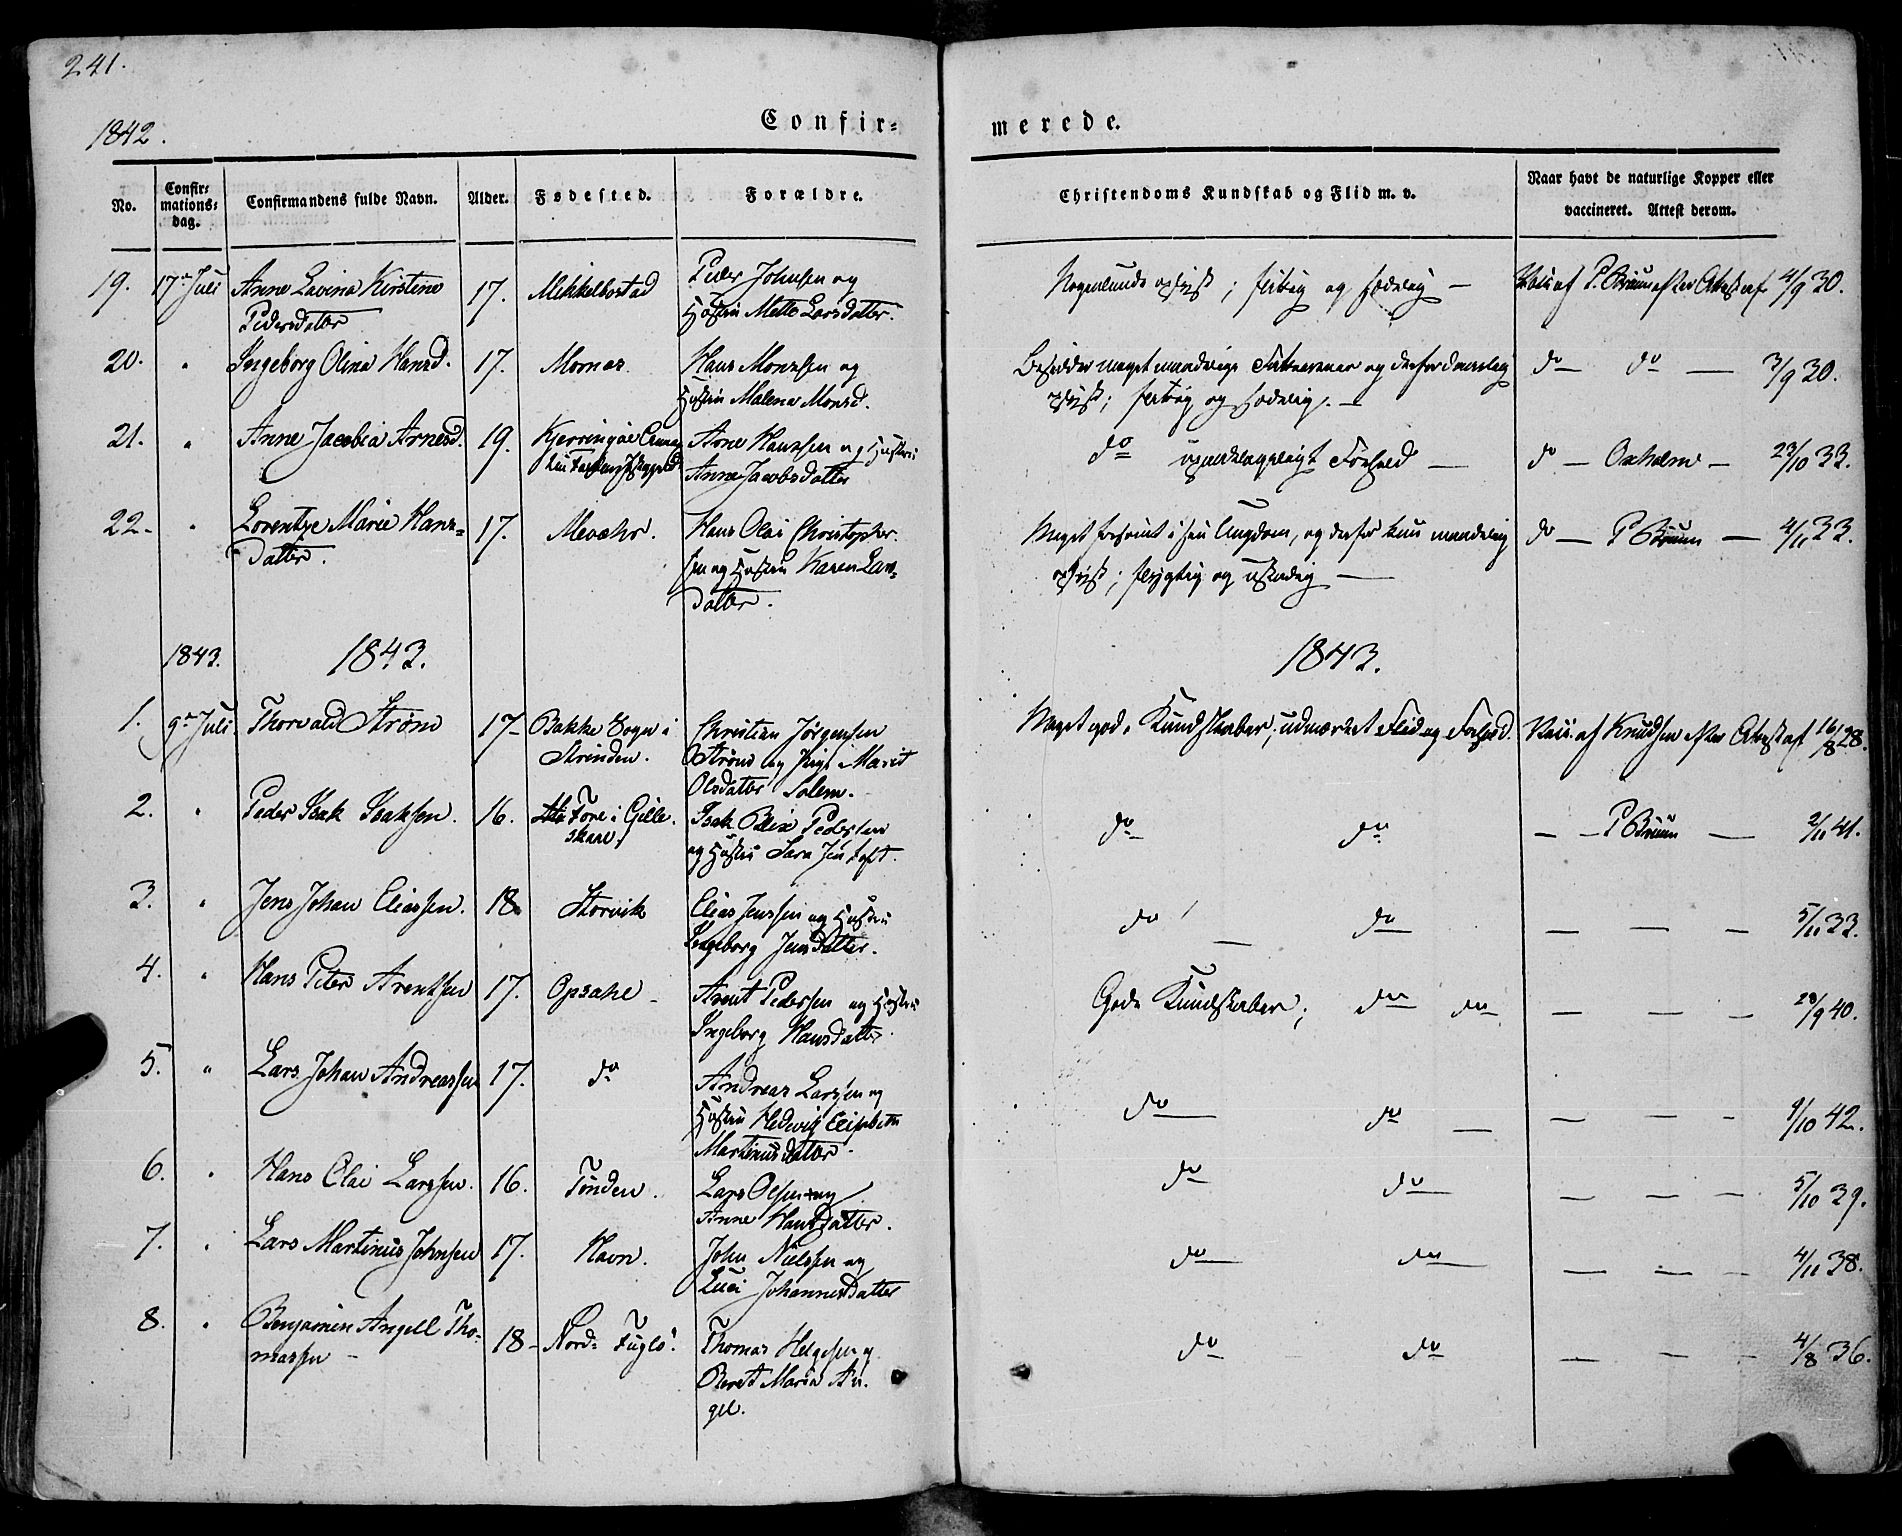 241.
1842.
Confir=
merede.
No.
Confir=
mations=
dag.
Confirmandens fulde Navn.
Alder.
Fødested.
Forældre.
Christendoms Kundskab og Flid m. v.
Naar havt de naturlige Kopper eller
vaccineret. Attest derom.
19. 17de Juli Anne Lavina Kirstine 17. Mikkelbostad Peder Johnsen og
Pedersdatter Hustru Mette Larsdatter.
Nogenlunde oplyst; flittig og sædelig — Vacc: af P. Bruun efter Attest af 4/9 30.
20. " Ingeborg Olina Hansd. 17. Mornes Hans Monssen og
Hustru Malena Monsd.
Besidder meget maadelige og derfor daarlig do — do — 3/9 30.
oplyst; flittig og sædelig. —
21. " Anne Jacobia Arnesd. 19. Kjerringøe Arne Hanssen og Hustru
Anne Jacobsdatter
do Forhold — do — Oxholm — 23/10 33.
22. " Lorentze Marie Hans= 17. Mevehr. Hans Olai Christopher.
datter. sen og Hustru Karen Lars=
datter.
Meget forsømt i sin Ungdom, og derfor kun maadelig do — P Bruun — 4/11 33.
oplyst; flygtig og ustadig —
1843. 1843. 1843.
1. 9de Juli Thorvald Strøm 17 Bakke Sogn i Christian Jørgensen
Strinden. Strøm og Pige Marit
Olsdatter Solem.
Meget gode Kundskaber; udmærket Flid og Forhold. Vacc. af Knudsen efter Attest af 16/8 28.
2. " Peder Isak Isaksen. 16. Fore i Gille. Isak Blix Pedersen
skaal. og Hustru Sara
do do — — P Bruun — 2/11 41.
3. " Jens Johan Eliassen. 18 Storvik Elias Jenssen og Hustru
Ingeborg Jensdatter.
do — do — — — 5/11 33.
4. " Hans Peter Arentsen 17. Opsahl Arent Pedersen og Hustru
Ingeborg Hansdatter.
Gode Kundskaber; do do — — — 28/9 40.
5. " Lars Johan Andreassen 17. do Andreas Larssen og
Hustru Hedevig Elisabeth
Martinusdatter.
do do — — — — 9/10 42.
6. " Hans Olai Larssen. 16. Tønden. Lars Olsen og
Anne Hansdatter.
do do — — — 5/10 39.
7. " Lars Martinus Johnsen 17. Havn. John Nielssen og
Luci Johannesdatter
do do — — — 4/11 38.
8. " Benjamin Angell Tho= 18 Nord= Fuglø. Thomas Helgesen og
massen Beret Maria An.
gel.
do do — — — 4/8 36.